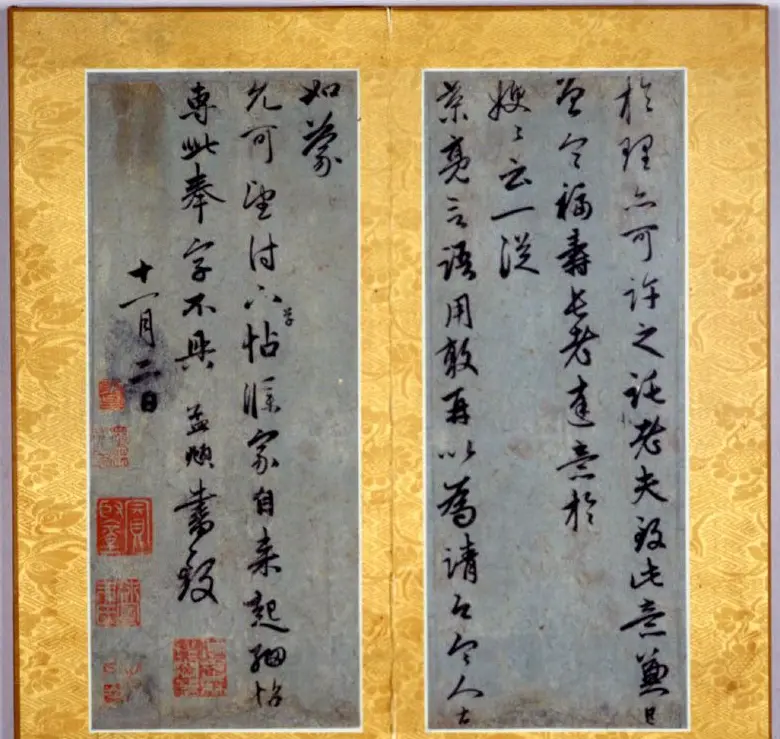 於理亦可許之託老夫致此意兼日
曾令福壽長老達意於
嫂々云一從
景亮言語用敢再以為請只今人去
如蒙
允可望付下草帖家自來起細帖
專此奉字不具 孟頫書致
十一月二日